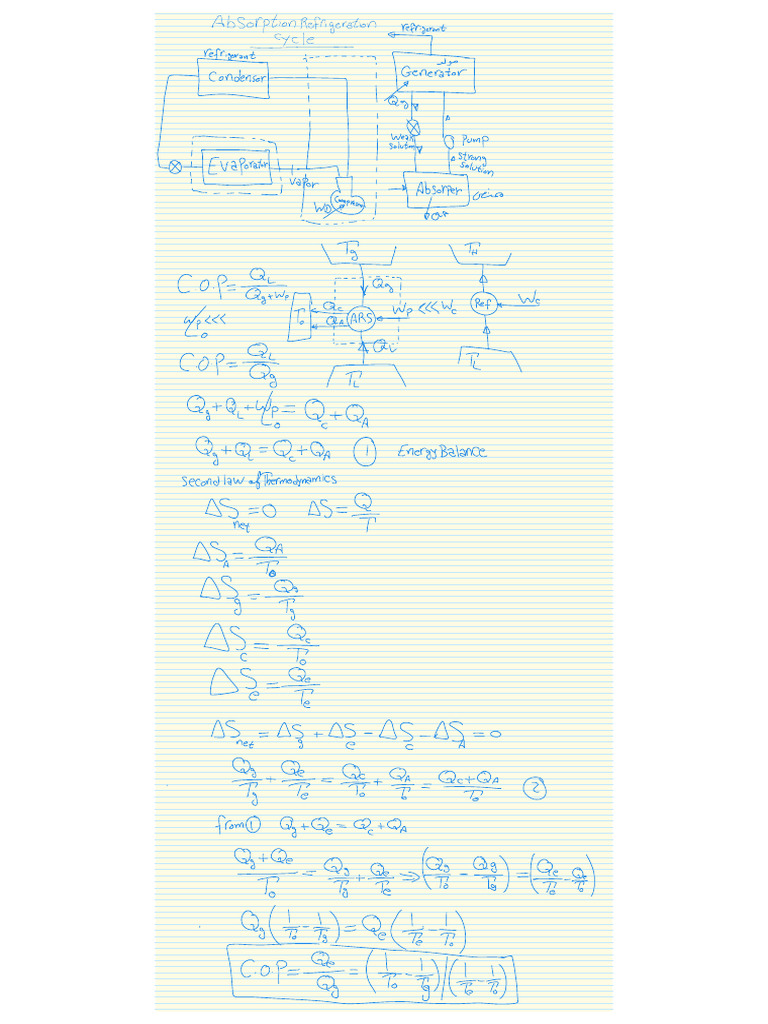 Absorption Refrigeration
Cycle
refrigerant
Condensor
Evaporator
Vapor
Compressor
refrigerant
مولد
Generator
Qg
Weak
Solution
Pump
Strong
Solution
Absorper
QA
C.O.P = QL / (Qg + Wp)
Wp <<<
0
C.O.P = QL / Qg
Tg
Qg
Qc
QA
To
ARS
Wp <<< Wc
QL
TL
TH
Ref
Wc
TL
Qg + QL + Wp = Qc + QA
0
Qg + QL = Qc + QA ① Energy Balance
Second law of Thermodynamics
ΔS net = 0 ΔS = Q/T
ΔSA = QA/To
ΔSg = Qg/Tg
ΔSc = Qc/To
ΔSe = Qe/Te
ΔS net = ΔSg + ΔSe - ΔSc - ΔSA = 0
Qg/Tg + Qe/Te = Qc/To + QA/To = (Qc + QA)/To ②
from ① Qg + Qe = Qc + QA
(Qg + Qe)/To = Qg/Tg + Qe/Te ⇒ (Qg/To - Qg/Tg) = (Qe/To - Qe/To)
Qg (1/To - 1/Tg) = Qe (1/To - 1/To)
C.O.P = Qe/Qg = (1/To - 1/Tg) / (1/To - 1/To)